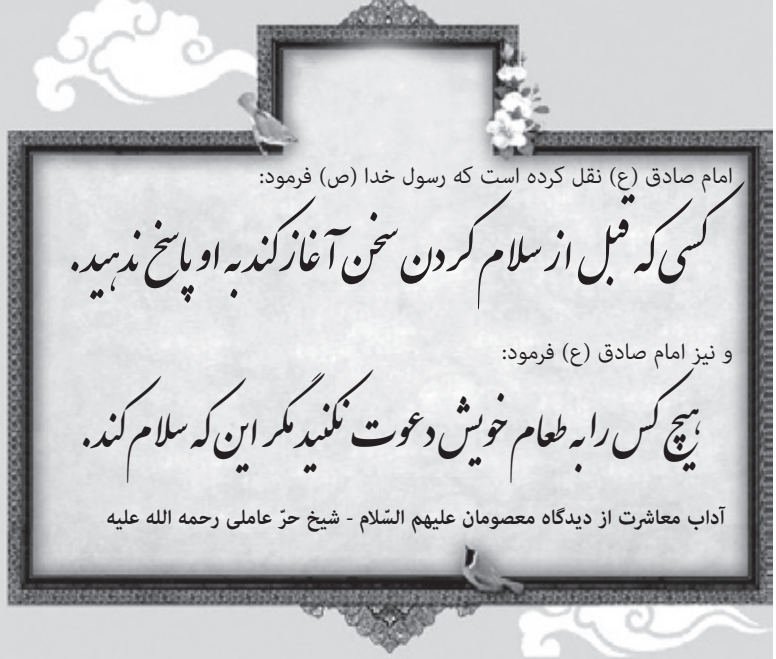 امام صادق (ع) نقل کرده است که رسول خدا (ص) فرمود:
کسی که قبل از سلام کردن سخن آغاز کند به او پاسخ ندهید.
و نیز امام صادق (ع) فرمود:
هیچ کس را به طعام خویش دعوت نکنید مگر این که سلام کند.
آداب معاشرت از دیدگاه معصومان علیهم السّلام - شیخ حرّ عاملی رحمه الله علیه